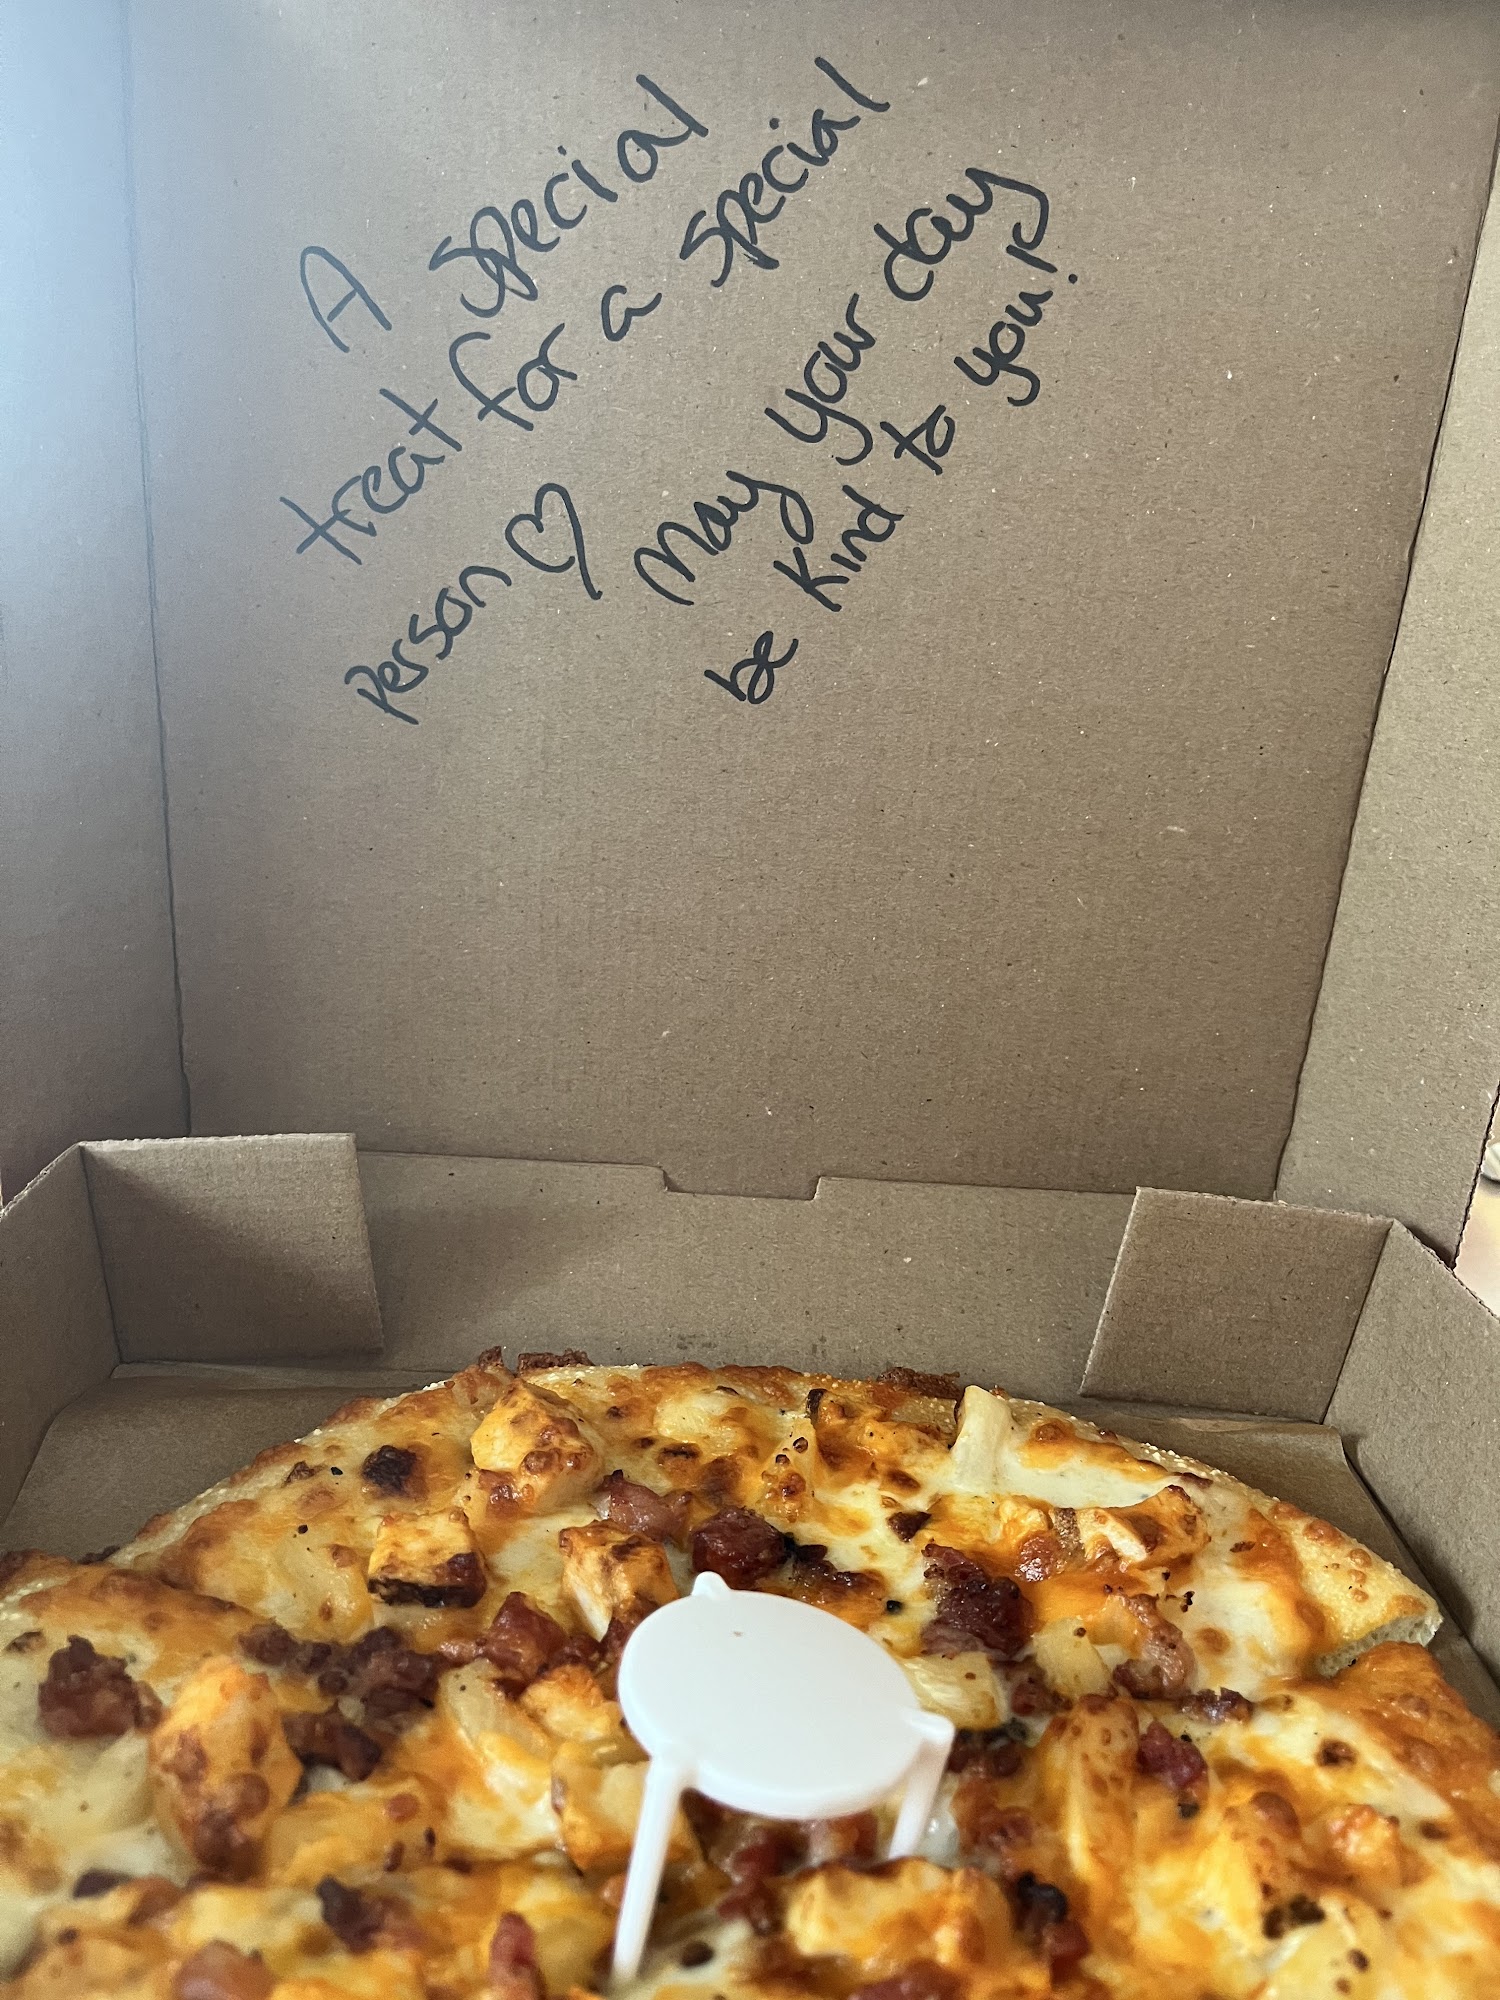 A special
treat for a special
person ♡
May your day
be kind to you!